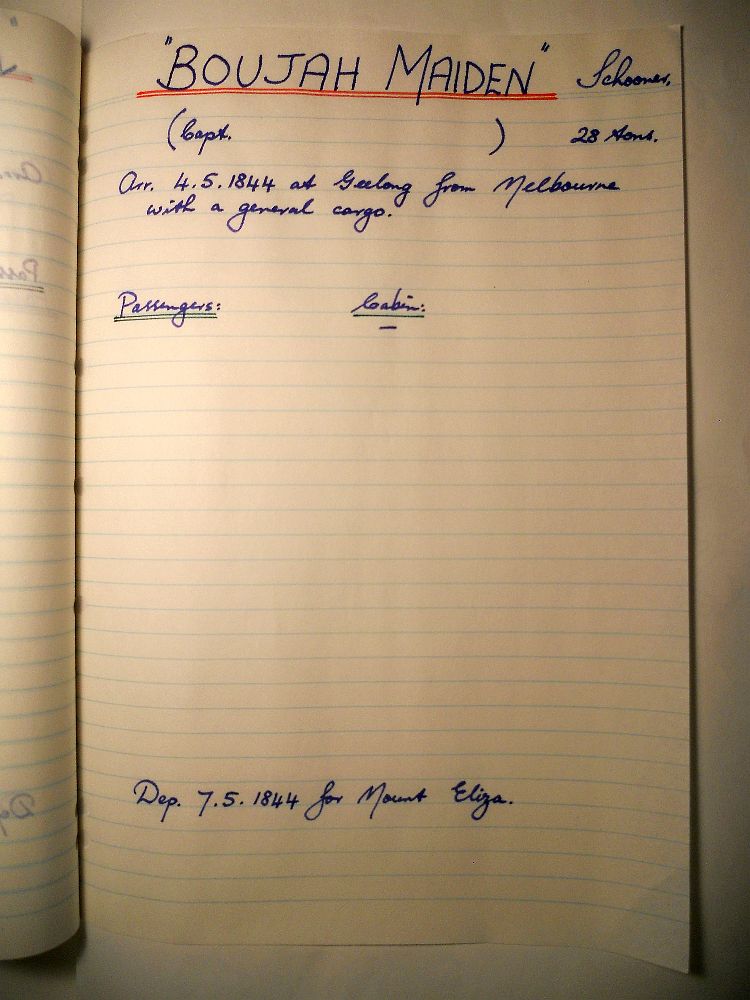 "BOUJAH MAIDEN" Schooner,
(Capt. ) 28 tons.
Arr. 4.5.1844 at Geelong from Melbourne
with a general cargo.
Passengers: Cabin:
—
Dep. 7.5.1844 for Mount Eliza.